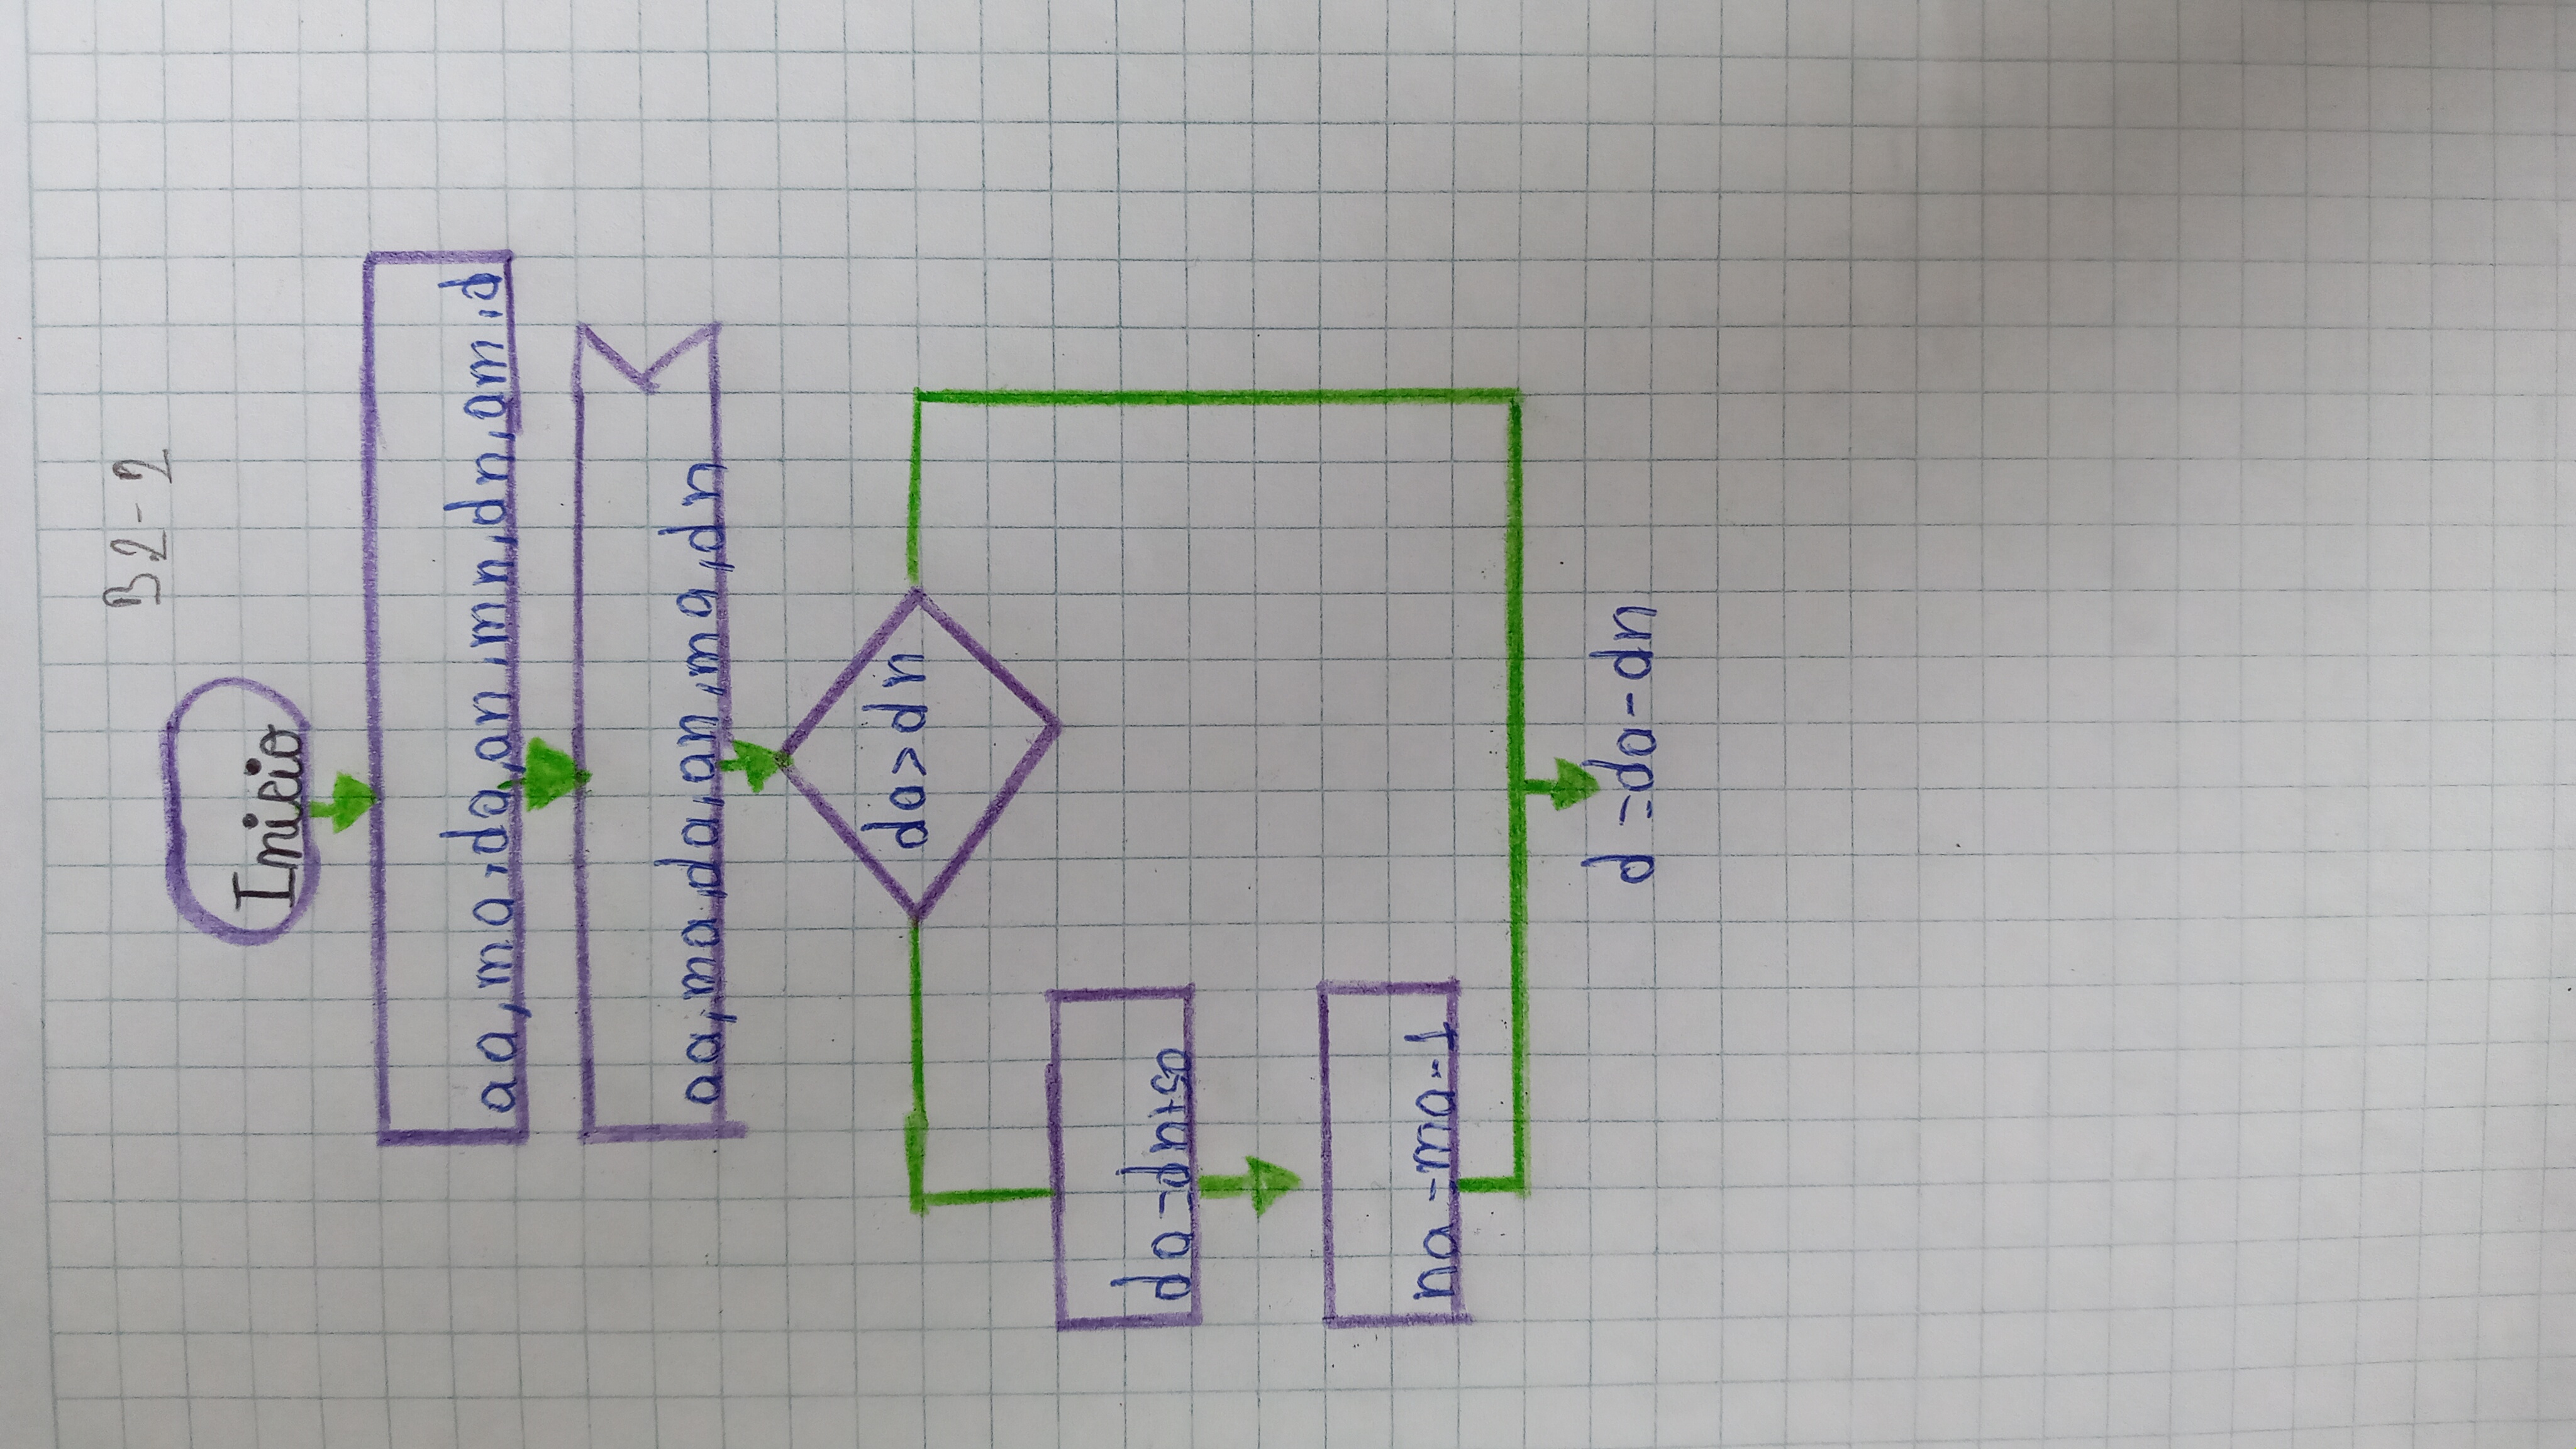 B2-2
Inicio
aa, ma, da, an, mn, dn, am, d
aa, ma, da, an, ma, dn
da>dn
da=dn+so
na=ma-1
d=da-dn